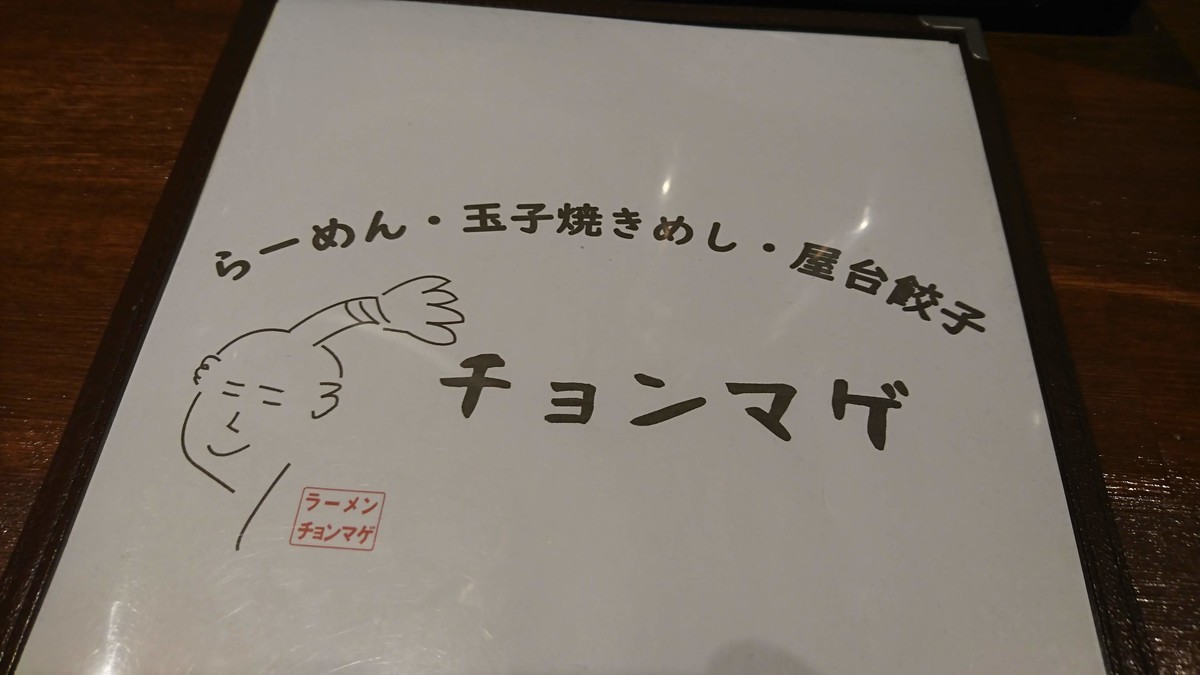 らーめん・玉子焼きめし・屋台餃子
チョンマゲ
ラーメン
チョンマゲ